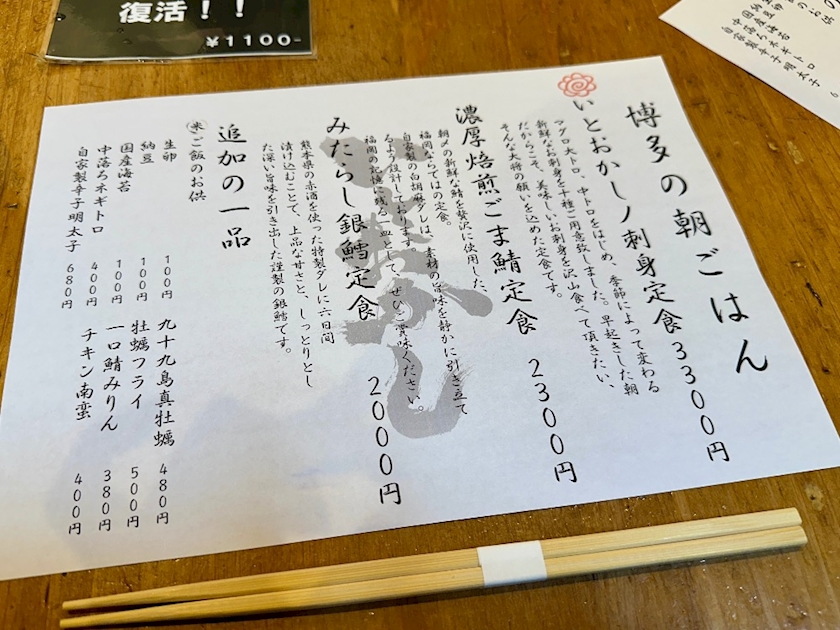 復活！！
¥1100-
博多の朝ごはん
いとおかしノ刺身定食 3300円
マグロ大トロ、中トロをはじめ、季節によって変わる
新鮮なお刺身を十種ご用意致しました。早起きした朝
だからこそ、美味しいお刺身を沢山食べて頂きたい、
そんな大将の願いを込めた定食です。
濃厚焙煎ごま鯖定食 2300円
朝〆の新鮮な鯖を贅沢に使用した、
福岡ならではの定食。
自家製の白胡麻ダレは、素材の旨味を静かに引き立て
るよう設計しております。
福岡の記憶に残る一皿として、ぜひご賞味ください。
みたらし銀鱈定食 2000円
熊本県の赤酒を使った特製ダレに六日間
漬け込むことで、上品な甘さと、しっとりとし
た深い旨味を引き出した謹製の銀鱈です。
追加の一品
米 ご飯のお供
生卵 100円
納豆 100円
国産海苔 100円
中落ちネギトロ 400円
自家製辛子明太子 680円
九十九島真牡蠣 480円
牡蠣フライ 500円
一口鯖みりん 380円
チキン南蛮 400円
国産海苔
中落ちネギトロ
自家製辛子明太子 6